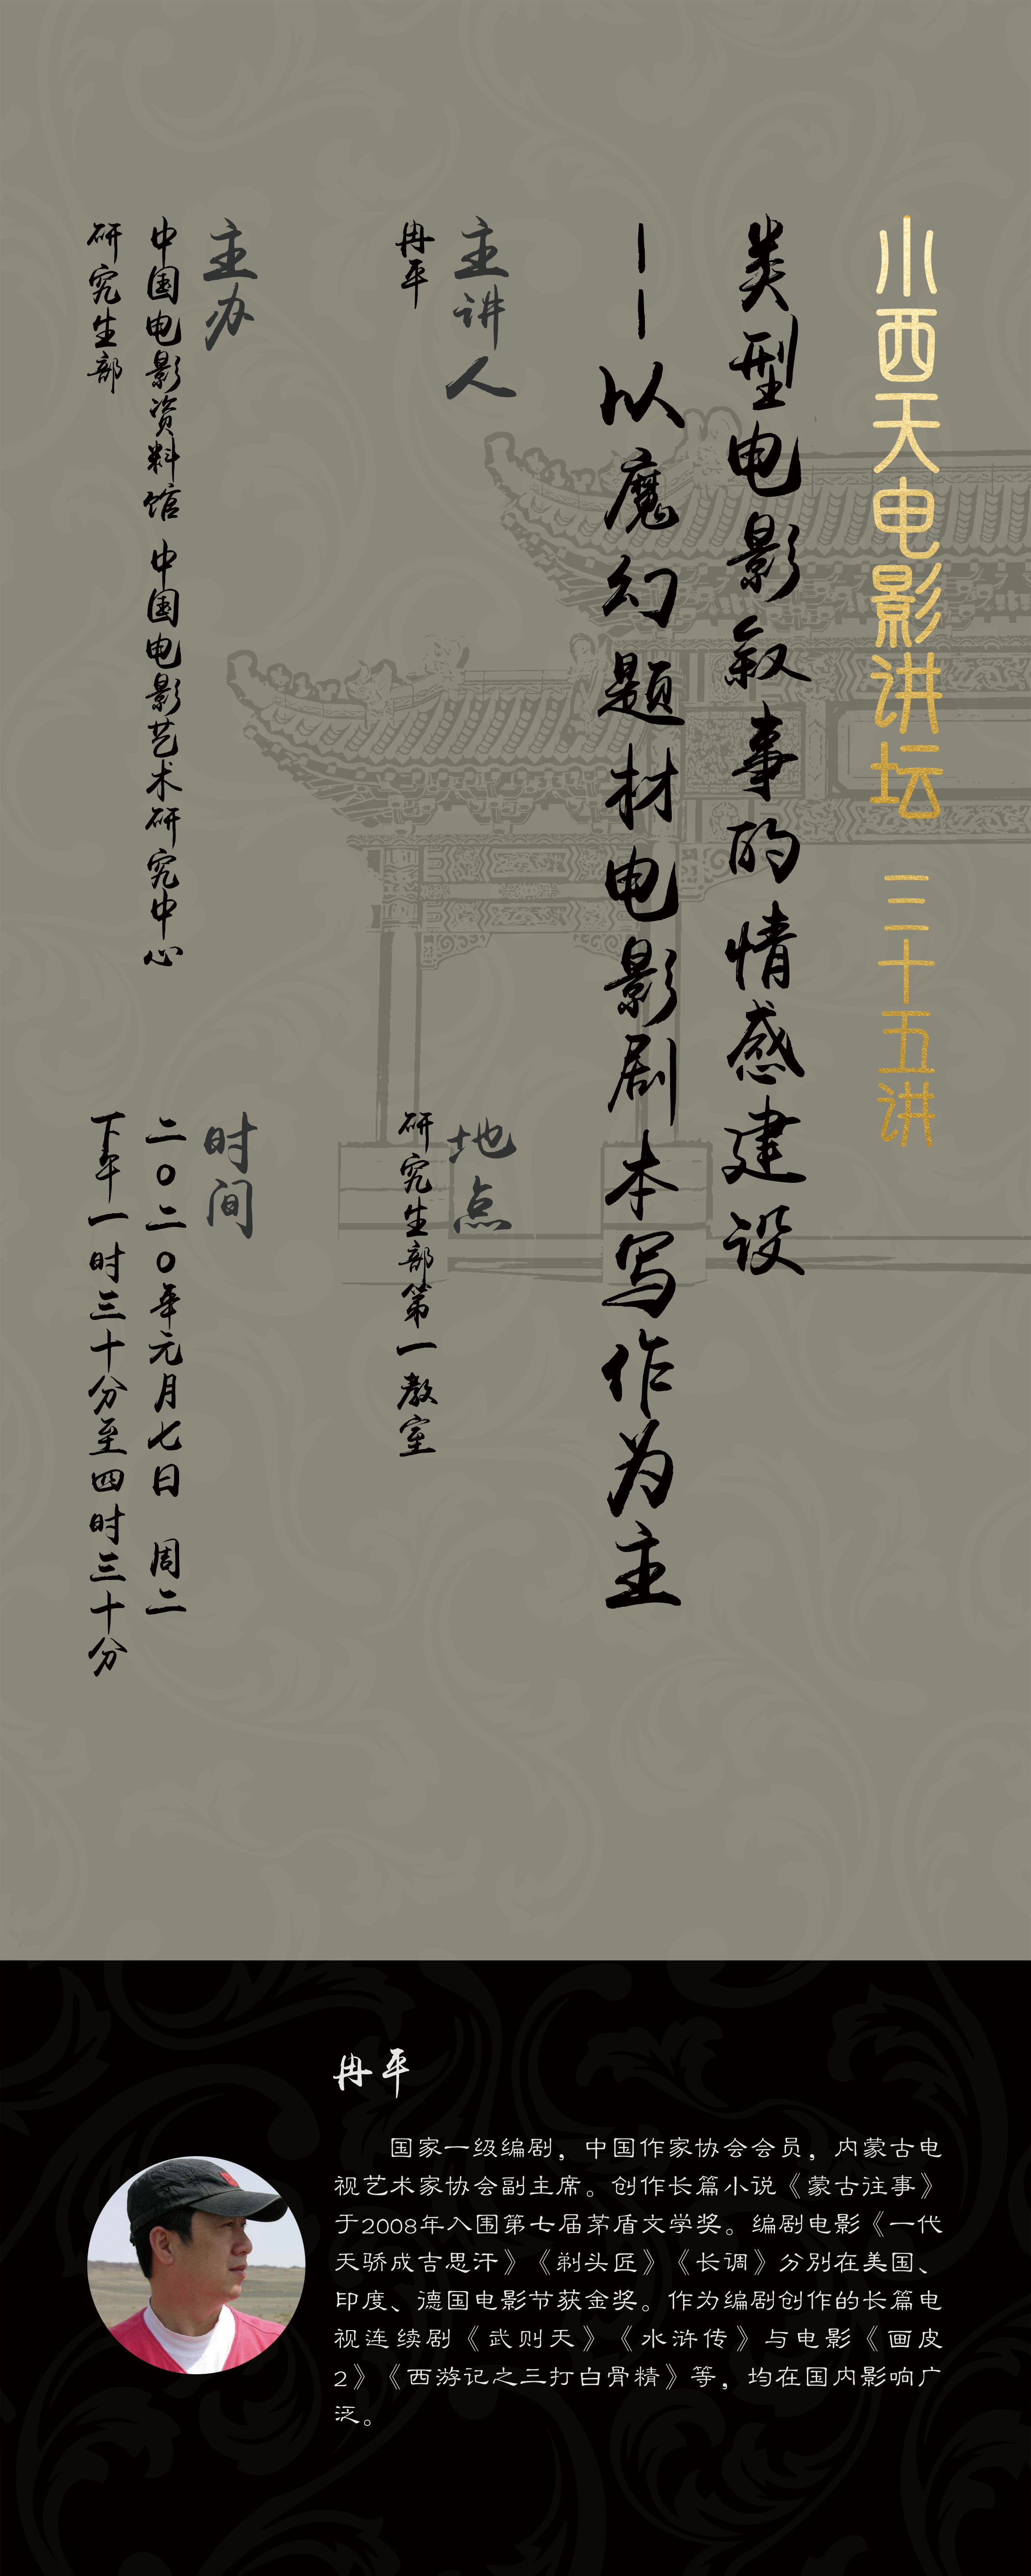 小西天电影讲坛 三十五讲
类型电影叙事的情感建设
——以魔幻题材电影剧本写作为主
主讲人
冉平
地点
研究生部第一教室
主办
中国电影资料馆 中国电影艺术研究中心
研究生部
时间
二〇二〇年元月七日 周二
下午一时三十分至四时三十分
冉平
国家一级编剧，中国作家协会会员，内蒙古电
视艺术家协会副主席。创作长篇小说《蒙古往事》
于2008年入围第七届茅盾文学奖。编剧电影《一代
天骄成吉思汗》《剃头匠》《长调》分别在美国、
印度、德国电影节获金奖。作为编剧创作的长篇电
视连续剧《武则天》《水浒传》与电影《画皮
2》《西游记之三打白骨精》等，均在国内影响广
泛。